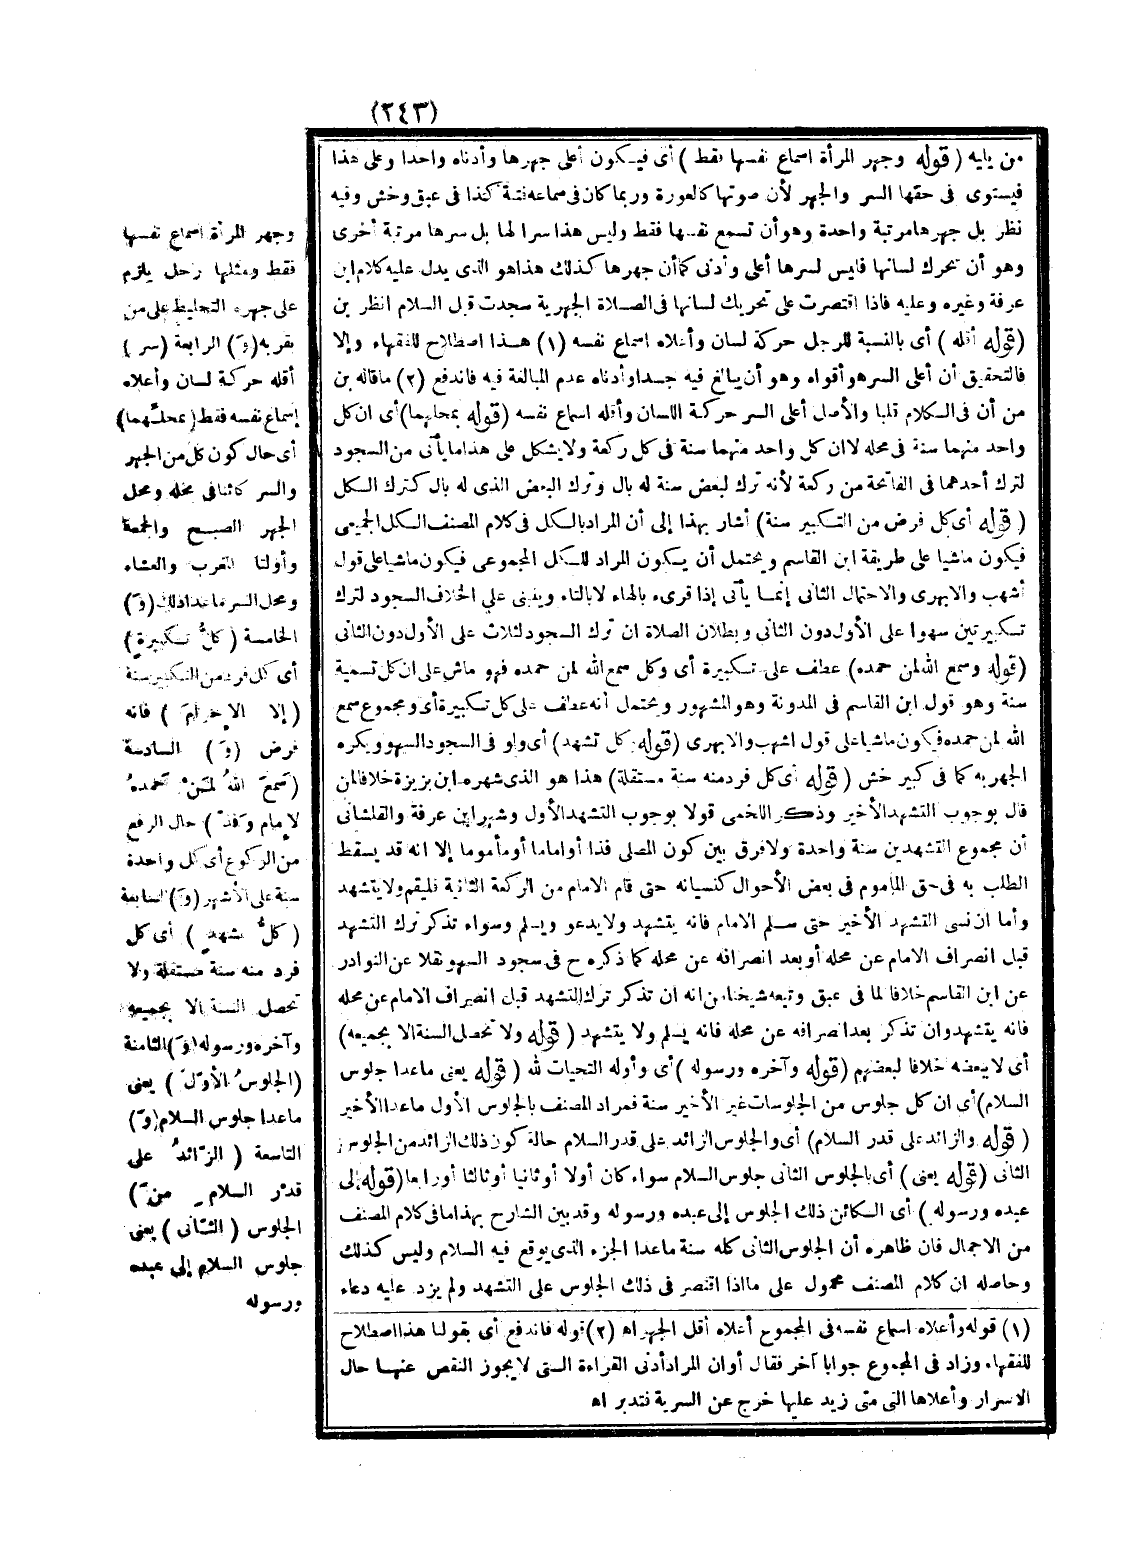 (٢٤٣)
من يليه (قوله وجهر المرأة اسماع نفسها فقط) أى فيكون أعلى جهرها وأدناه واحدا وعلى هذا
فيستوى فى حقها السر والجهر لأن صوتها كالعورة وربما كان فى سماعه فتنة كذا فى عبق وخش وفيه
نظر بل جهرها مرتبة واحدة وهو أن تسمع نفسها فقط وليس هذا سرا لها بل سرها مرتبة أخرى
وهو أن تحرك لسانها فليس لسرها أعلى وأدنى كما أن جهرها كذلك هذا هو الذى يدل عليه كلام ابن
عرفة وغيره وعليه فاذا اقتصرت على تحريك لسانها فى الصلاة الجهرية سجدت قبل السلام انظر بن
(قوله أقله) أى بالنسبة للرجل حركة لسان وأعلاه اسماع نفسه (١) هذا اصطلاح للفقهاء وإلا
فالتحقيق أن أعلى السر هو أقواه وهو أن يبالغ فيه جدا وأدناه عدم المبالغة فيه فاندفع (٢) ما قاله بن
من أن فى الكلام قلبا والأصل أعلى السر حركة اللسان وأقله اسماع نفسه (قوله بمحلهما) أى ان كل
واحد منهما سنة فى محله لا ان كل واحد منهما سنة فى كل ركعة ولا يشكل على هذا ما يأتى من السجود
لترك أحدهما فى الفاتحة من ركعة لأنه ترك لبعض سنة له بال وترك البعض الذى له بال كترك الكل
(قوله أى كل فرض من التكبير سنة) أشار بهذا إلى أن المراد بالكل فى كلام المصنف الكل الجميعى
فيكون ماشيا على طريقة ابن القاسم ويحتمل أن يكون المراد للكل المجموعى فيكون ماشيا على قول
أشهب والابهرى والاحتمال الثانى إنما يأتى إذا قرىء بالهاء لا بالتاء وينبنى على الخلاف السجود لترك
تكبيرتين سهوا على الأول دون الثانى وبطلان الصلاة ان ترك السجود لثلاث على الأول دون الثانى
(قوله وسمع الله لمن حمده) عطف على تكبيرة أى وكل سمع الله لمن حمده فهو ماش على ان كل تسمية
سنة وهو قول ابن القاسم فى المدونة وهو المشهور ويحتمل أنه عطف على كل تكبيرة أى ومجموع سمع
الله لمن حمده فيكون ماشيا على قول اشهب والابهرى (قوله كل تشهد) أى ولو فى السجود السهو ويكره
الجهر به كما فى كبير خش (قوله أى كل فرد منه سنة مستقلة) هذا هو الذى شهره ابن بزيزة خلافا لمن
قال بوجوب التشهد الأخير وذكر اللخمى قولا بوجوب التشهد الأول وشهر ابن عرفة والقلشانى
أن مجموع التشهدين سنة واحدة ولا فرق بين كون المصلى فذا أو اماما أو مأموما إلا انه قد يسقط
الطلب به فى حق المأموم فى بعض الأحوال كنسيانه حتى قام الامام من الركعة الثانية فليقم ولا يتشهد
وأما ان نسى التشهد الأخير حتى سلم الامام فانه يتشهد ولا يدعو ويسلم وسواء تذكر ترك التشهد
قبل انصراف الامام عن محله أو بعد انصرافه عن محله كما ذكره ح فى سجود السهو نقلا عن النوادر
عن ابن القاسم خلافا لما فى عبق وتبعه شيخنا من انه ان تذكر ترك التشهد قبل انصراف الامام عن محله
فانه يتشهد وان تذكر بعد انصرافه عن محله فانه يسلم ولا يتشهد (قوله ولا تحصل السنة الا بجميعه)
أى لا ببعضه خلافا لبعضهم (قوله وآخره ورسوله) أى وأوله التحيات لله (قوله يعنى ما عدا جلوس
السلام) أى ان كل جلوس من الجلوسات غير الأخير سنة فمراد المصنف بالجلوس الأول ما عدا الأخير
(قوله والزائد على قدر السلام) أى والجلوس الزائد على قدر السلام حالة كون ذلك الزائد من الجلوس
الثانى (قوله يعنى) أى بالجلوس الثانى جلوس السلام سواء كان أولا أو ثانيا أو ثالثا أو رابعا (قوله إلى
عبده ورسوله) أى الكائن ذلك الجلوس إلى عبده ورسوله وقد بين الشارح بهذا ما فى كلام المصنف
من الاجمال فان ظاهره أن الجلوس الثانى كله سنة ما عدا الجزء الذى يوقع فيه السلام وليس كذلك
وحاصله ان كلام المصنف محمول على ما اذا اقتصر فى ذلك الجلوس على التشهد ولم يزد عليه دعاء
(١) قوله وأعلاه اسماع نفسه فى المجموع أعلاه أقل الجهر اه (٢) قوله فاندفع أى بقولنا هذا اصطلاح
للفقهاء وزاد فى المجموع جوابا آخر فقال أو ان المراد أدنى القراءة التى لا يجوز النقص عنها حال
الاسرار وأعلاها التى متى زيد عليها خرج عن السرية فتدبر اه
وجهر المرأة اسماع نفسها
فقط ومثلها رجل يلزم
على جهره التخليط على من
بقربه (وَ) الرابعة (سر)
أقله حركة لسان وأعلاه
إسماع نفسه فقط (بمحلهما)
أى حال كون كل من الجهر
والسر كائنا فى محله ومحل
الجهر الصبح والجمعة
وأولتا المغرب والعشاء
ومحل السر ما عدا ذلك (وَ)
الخامسة (كلُّ تكبيرةٍ)
أى كل فرد من التكبير سنة
(إلا الإحرامَ) فانه
فرض (وَ) السادسة
(سَمعَ اللهُ لمَنْ حَمدهُ
لإمام وفذّ) حال الرفع
من الركوع أى كل واحدة
سنة على الأشهر (وَ) السابعة
(كلُّ تشهدٍ) أى كل
فرد منه سنة مستقلة ولا
تحصل السنة الا بجميعه
وآخره ورسوله (وَ) الثامنة
(الجلوسُ الأوّل) يعنى
ما عدا جلوس السلام (وَ)
التاسعة (الزّائدُ على
قدْر السلام من)
الجلوس (الثّانى) يعنى
جلوس السلام إلى عبده
ورسوله